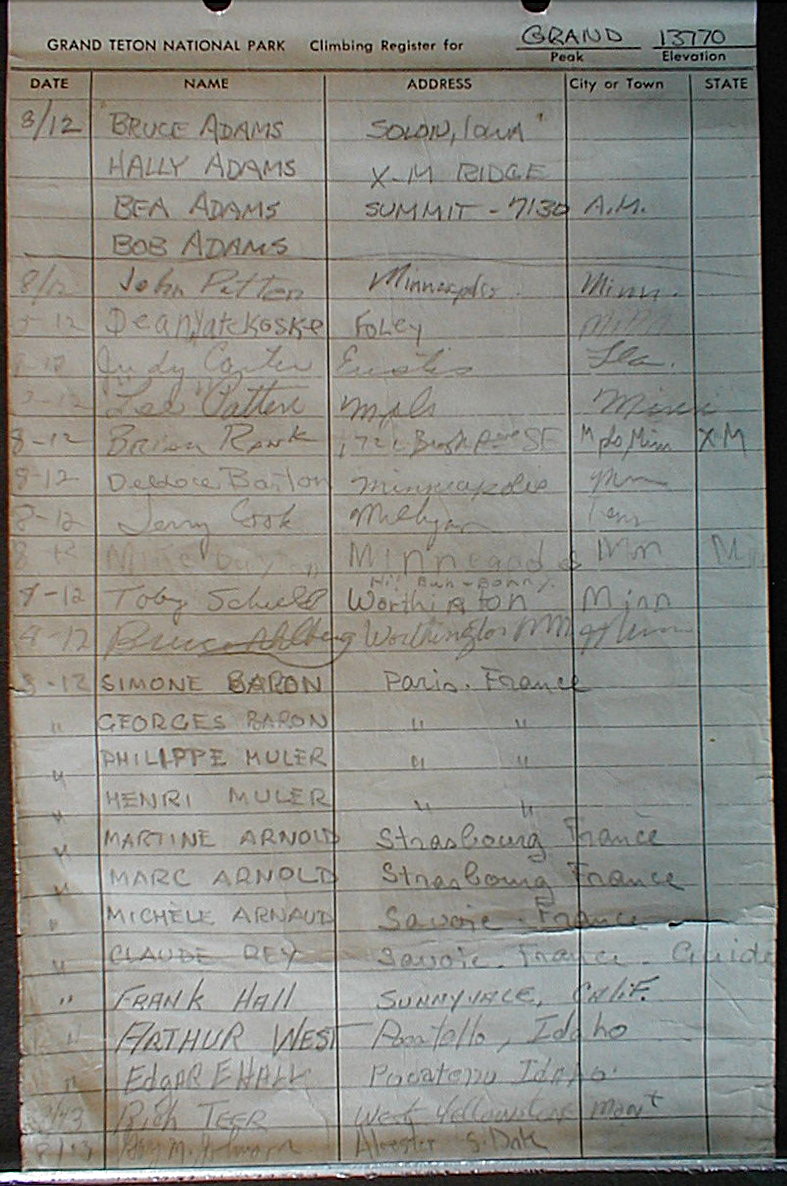 GRAND TETON NATIONAL PARK Climbing Register for GRAND 13770
Peak Elevation
DATE NAME ADDRESS City or Town STATE
8/12 "BRUCE ADAMS SOLON, IOWA"
HALLY ADAMS X-M RIDGE
BEA ADAMS SUMMIT - 7:30 A.M.
BOB ADAMS
8/12 John Patten Minneapolis Minn.
8-12 Dean Yatckoske FOLEY Minn
8-12 Judy Carter Eustis Fla.
8-12 "Lee" Patten Mpls Minn
8-12 Brian Rank Mpls Minn X-M
8-12 Barton Minneapolis Minn
8-12 Jerry Cook
8 12 Mike
8-12 Toby Worthington Minn
8-12 Bruce Ahlberg Worthington Minn
8-12 SIMONE BARON Paris. France
" GEORGES BARON " "
" PHILIPPE MULER " "
" HENRI MULER " "
" MARTINE ARNOLD Strasbourg France
" MARC ARNOLD Strasbourg France
" MICHÈLE ARNAUD Savoie. France
" CLAUDE REY Savoie. France. Guide
" FRANK HALL SUNNYVALE, CALIF.
" ARTHUR WEST Pocatello, Idaho
" EDGAR E HALL Pocatello Idaho.
Rich TEER West Yellowstone Mont
8/13 M. Johnson S. Dak